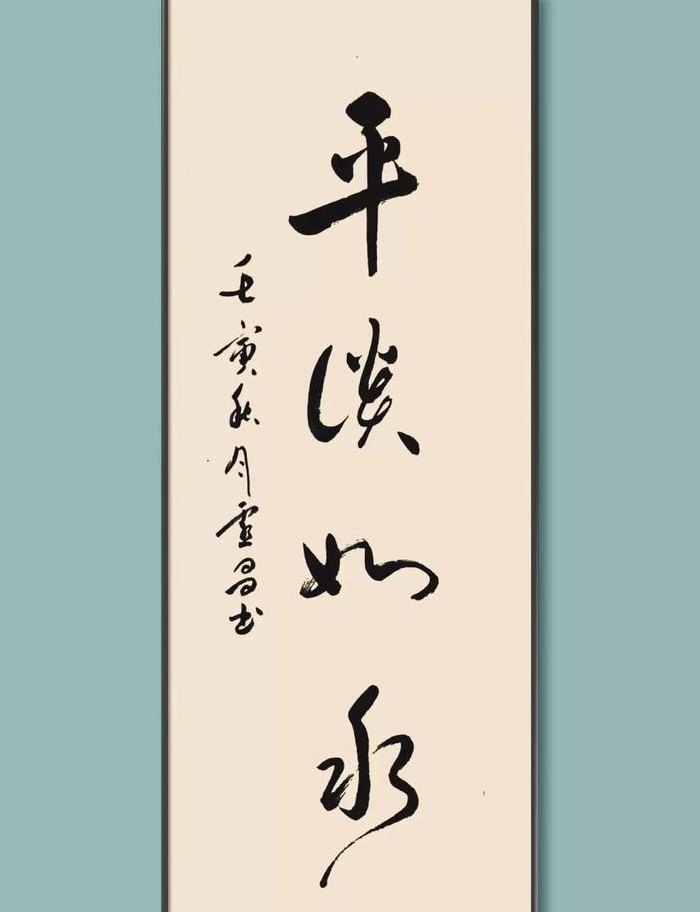 平淡如水
壬寅秋月灵昌书